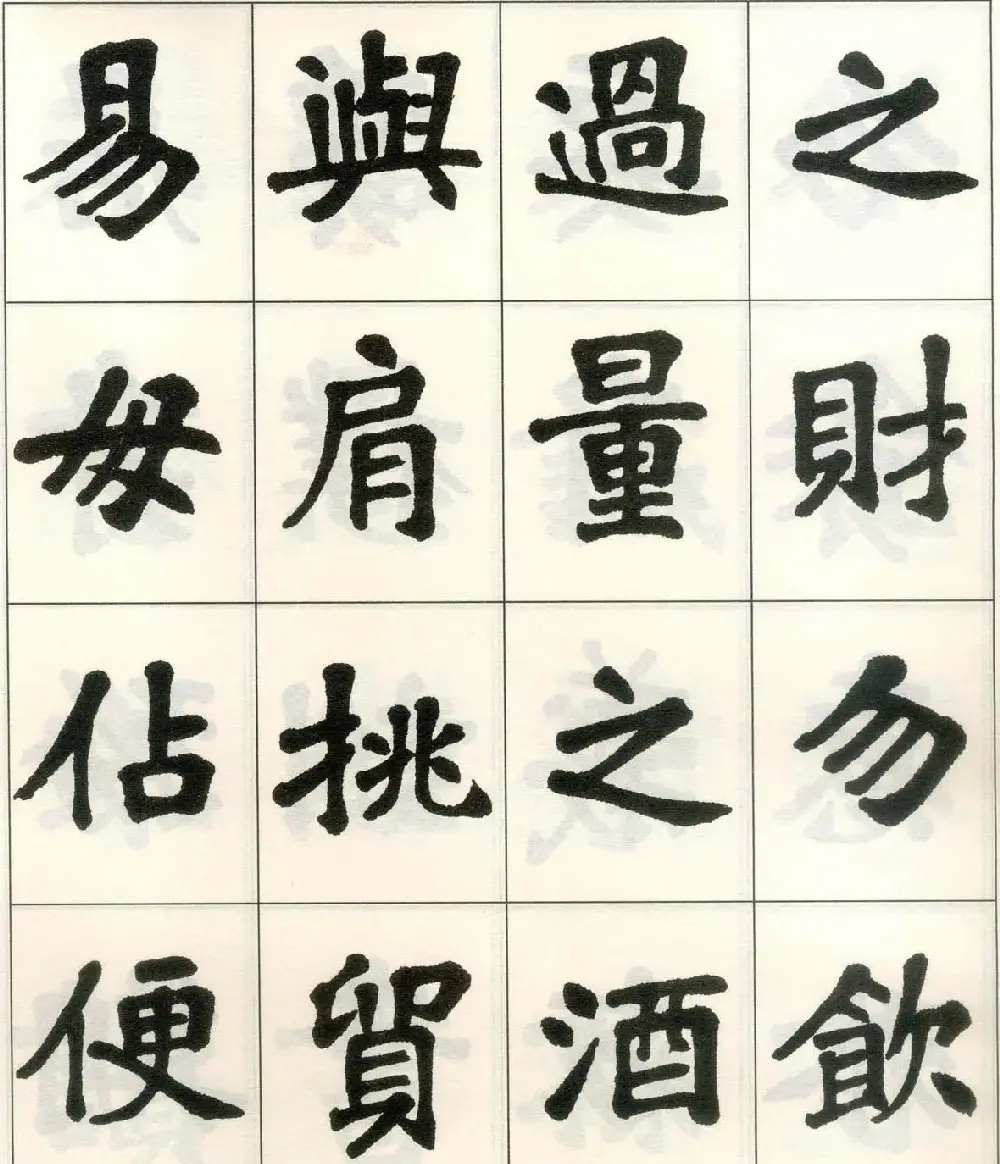 之財勿飲
過量之酒
與肩挑貿
易毋佔便